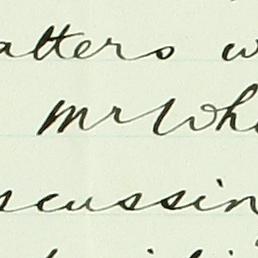 atters w
Mr Wh
scussin